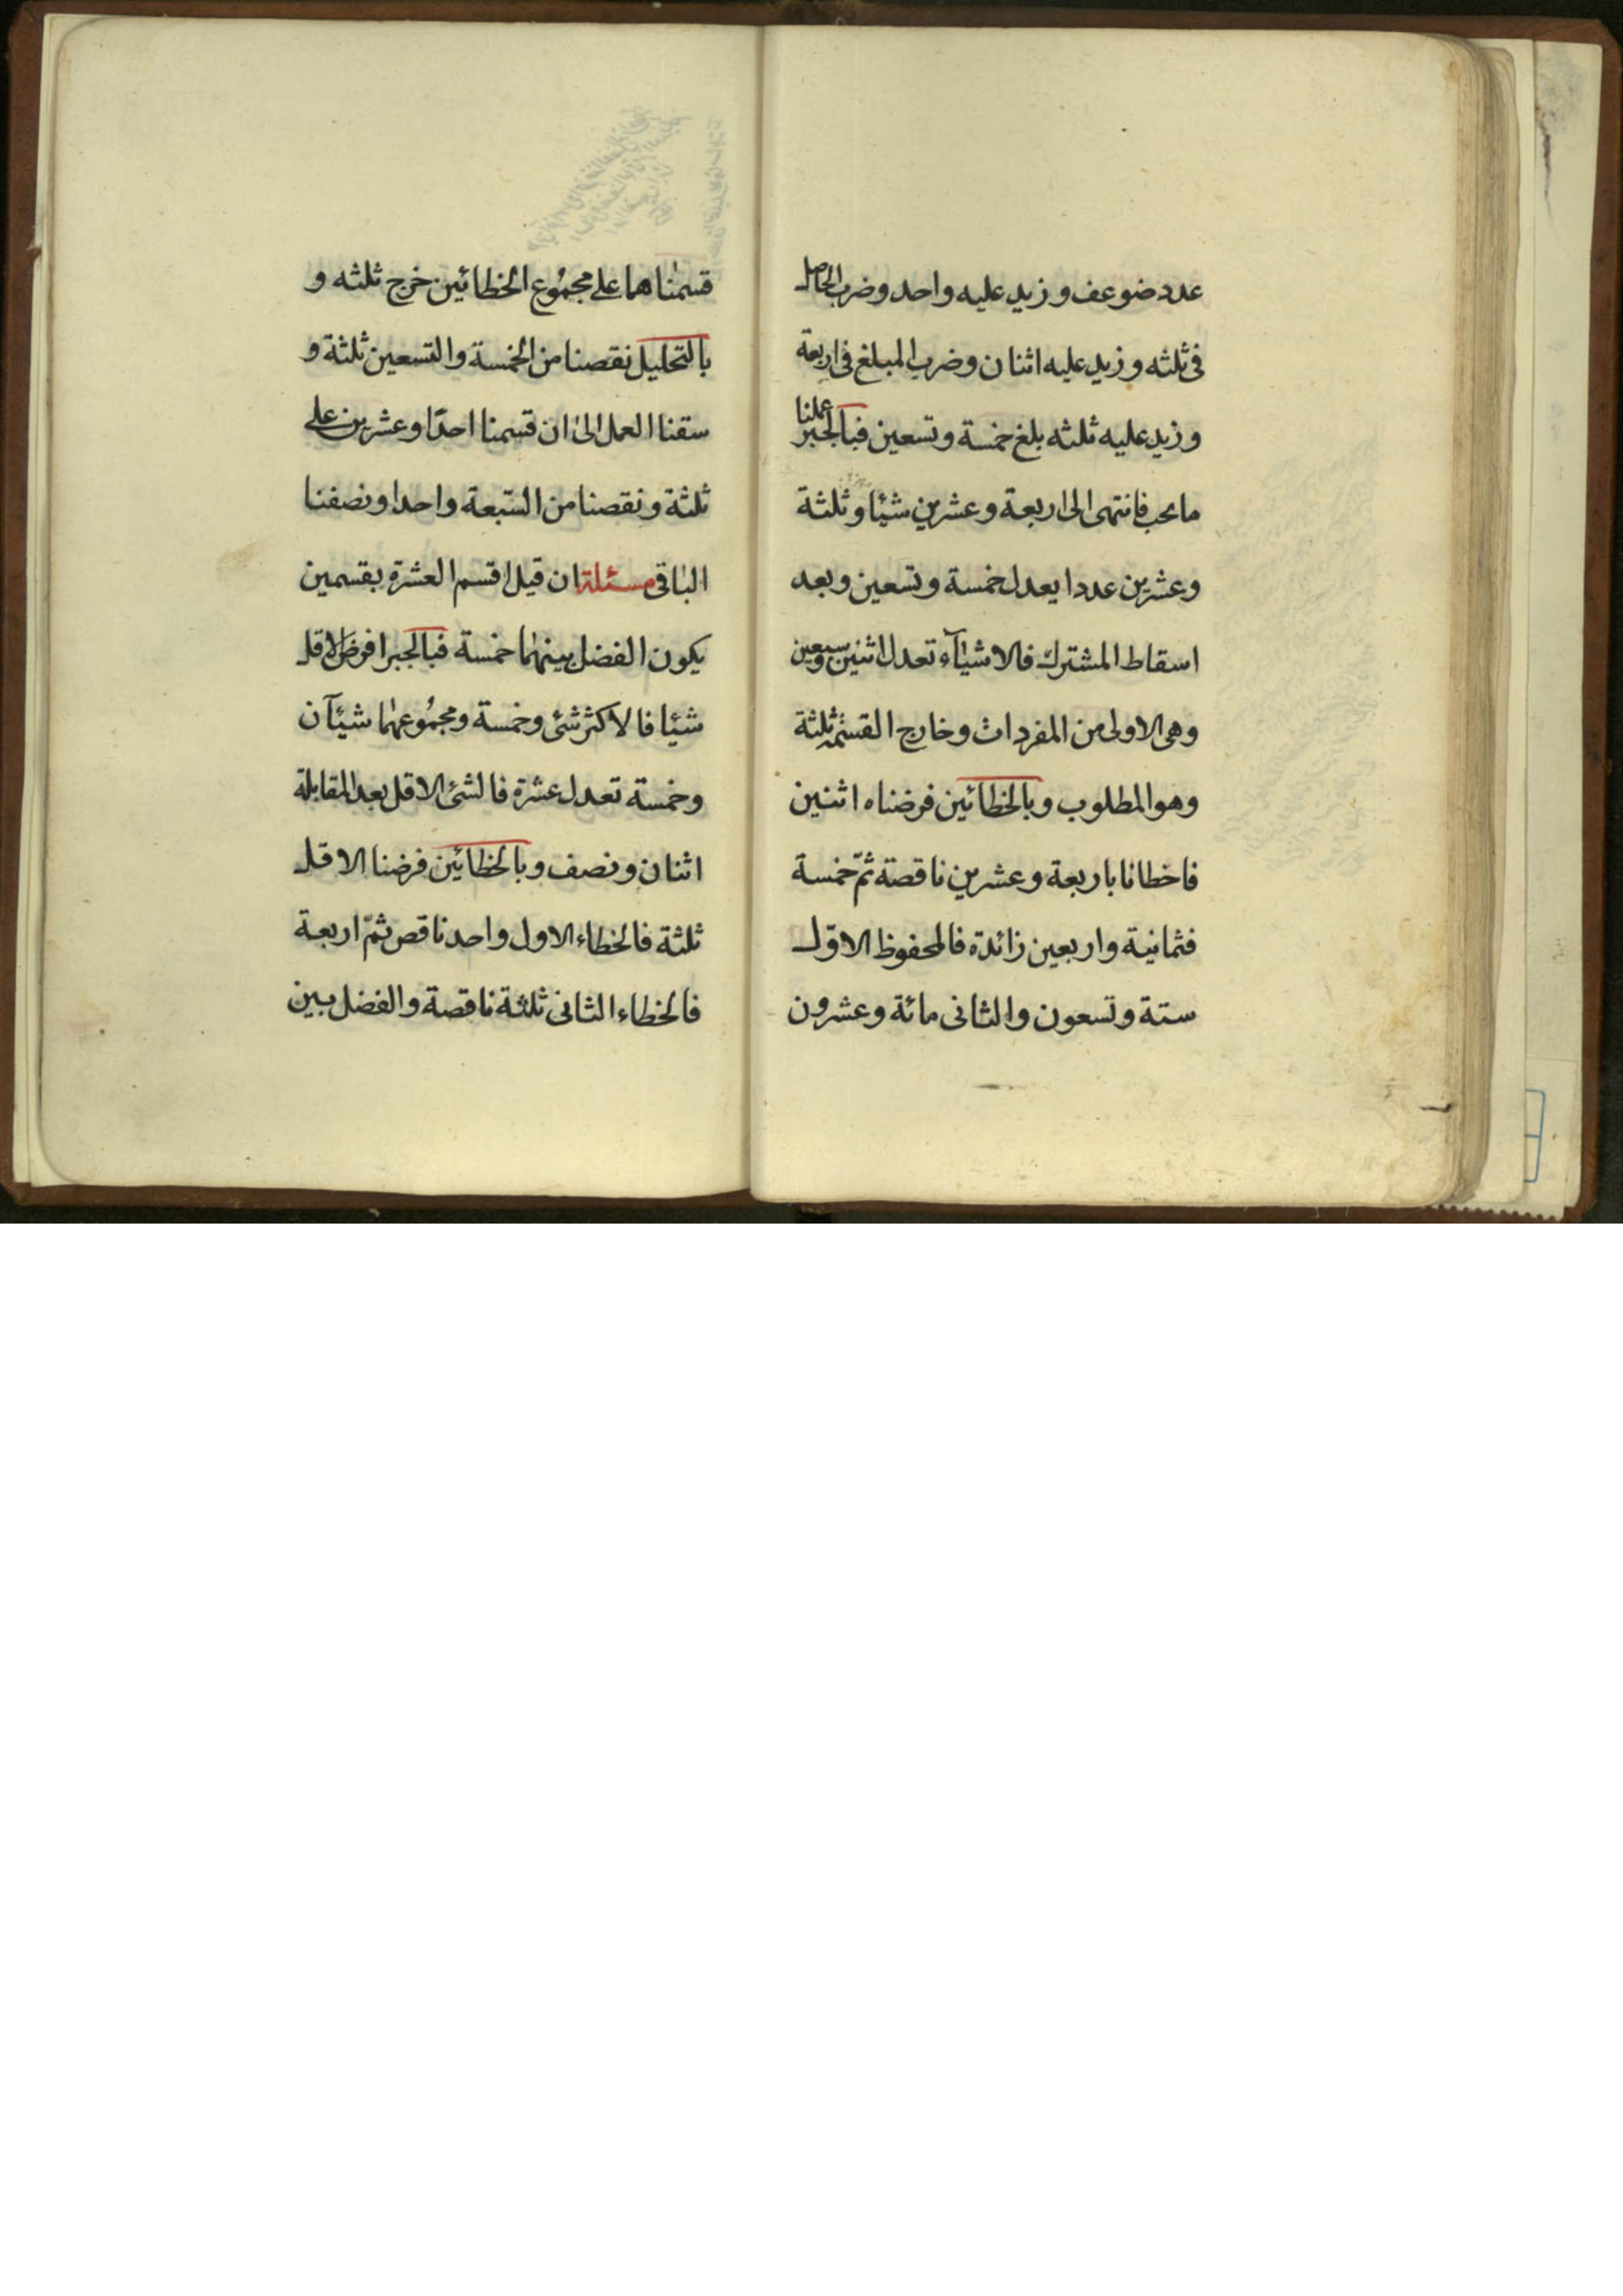 عدد ضوعف و زید علیه واحد وضرب الحاصل
فی ثلثه و زید علیه اثنان وضرب المبلغ فی اربعة
و زید علیه ثلثه بلغ خمسة وتسعین فبالجبر عملنا
ما یجب فانتهی الی اربعة وعشرین شیئا وثلثة
وعشرین عددا یعدل خمسة وتسعین وبعد
اسقاط المشترك فالاشیآء تعدل اثنین وسبعین
وهی الاولی من المفردات وخارج القسمة ثلثة
وهو المطلوب وبالخطائین فرضناه اثنین
فاخطانا باربعة وعشرین ناقصة ثمّ خمسة
فثمانیة واربعین زائدة فالمحفوظ الاوّل
ستة وتسعون والثانی مائة وعشرون
قسمناهما علی مجموع الخطائین خرج ثلثه و
بالتحلیل نقصنا من الخمسة والتسعین ثلثة و
سقنا العمل الی ان قسمنا احدًا وعشرین علی
ثلثة ونقصنا من السّبعة واحدا ونصفنا
الباقی مسئلة ان قیل اقسم العشرة بقسمین
یکون الفضل بینهما خمسة فبالجبر افرض الاقل
شیئا فالاکثر شئ وخمسة ومجموعهما شیئآن
وخمسة تعدل عشرة فالشئ الاقل بعد المقابلة
اثنان ونصف وبالخطائین فرضنا الاقل
ثلثة فالخطاء الاول واحد ناقص ثمّ اربعة
فالخطاء الثانی ثلثة ناقصة والفضل بین